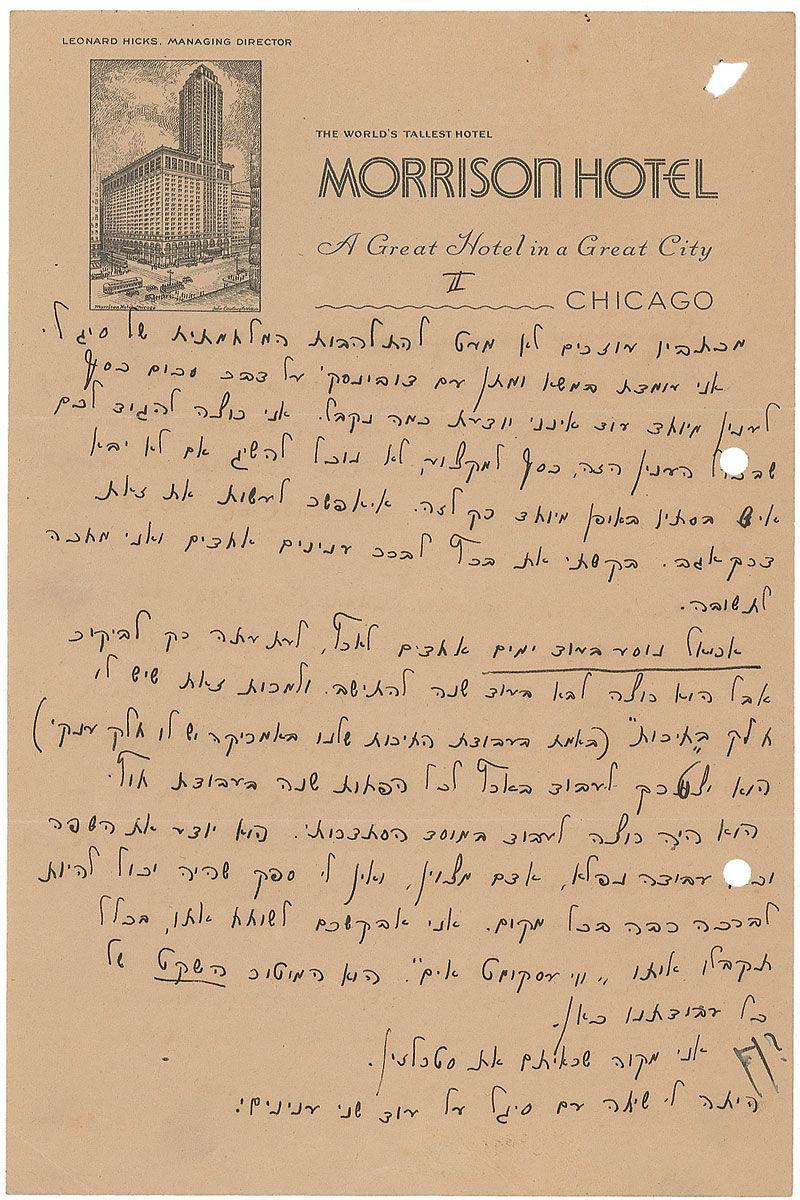 LEONARD HICKS, MANAGING DIRECTOR
THE WORLD'S TALLEST HOTEL
MORRISON HOTEL
A Great Hotel in a Great City
II
CHICAGO
מכתביו עוזרים לא מעט להתלהבות המלחמתית של סיגל.
אני עומדת במשא ומתן עם דובינסקי על דבר סכום כסף
לענין מיוחד עוד אינני יודעת כמה נקבל. אני רוצה להגיד לכם
הענין הזה, כסף למקצוע, לא נוכל להשיג אם לא יבא
איש בסתיו באופן מיוחד רק לזה. איאפשר לעשות את זאת
דרך אגב. בקשתי את ברל לברר ענינים אחדים ואני מחכה
לתשובה.
נוסע בעוד ימים אחדים לארץ, לעת עתה רק לביקור
אבל הוא רוצה לבא בעוד שנה להתישב. ולמרות זאת שיש לו
חלק בָּאיכות" (באמת בעבודת האיכות שלנו באמריקה יש לו חלק ענקי)
הוא יצטרך לעבוד בארץ לכל הפחות שנה בעבודת חוץ.
הוא היה רוצה לעבוד במוסד הסתדרותי. הוא יודע את השפה
עבודה נפלא, אדם מצוין, ואין לי ספק שהיה יכול להיות
לברכה רבה בכל מקום. אני אבקשכם לשוחח אתו, בכלל
תקבלו אותו „ווי עסקומט אים". הוא המיטיב השקט של
כל עבודתנו כאן.
אני מקוה שראיתם את סטרלזין.
היתה לי שיחה עם סיגל על עוד שני ענינים: